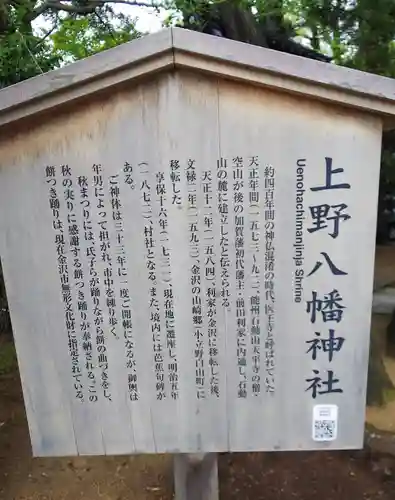 上野八幡神社
Uenohachimanjinja Shrine
約四百年間の神仏混淆の時代、医王寺と呼ばれていた
天正年間(一五七三〜九一二、能州石動山天平寺の僧・
空山が後の加賀藩初代藩主・前田利家に内通し、石動
山の麓に建立したと伝えられる。
天正十一年(一五八四)、利家が金沢に移転した後、
文禄二年(一五九三)、金沢の山崎郷(小立野白山町)に
移転した。
享保十六年(一七三一)、現在地に遷座し、明治五年
(一八七二)、村社となる。また、境内には芭蕉句碑が
ある。
ご神体は三十三年に一度ご開帳になるが、御輿は
年男によって担がれ、市中を練り歩く。
秋まつりには、氏子らが踊りながら餅の曲つきをし、
秋の実りに感謝する餅つき踊りが奉納される。この
餅つき踊りは、現在金沢市無形文化財に指定されている。